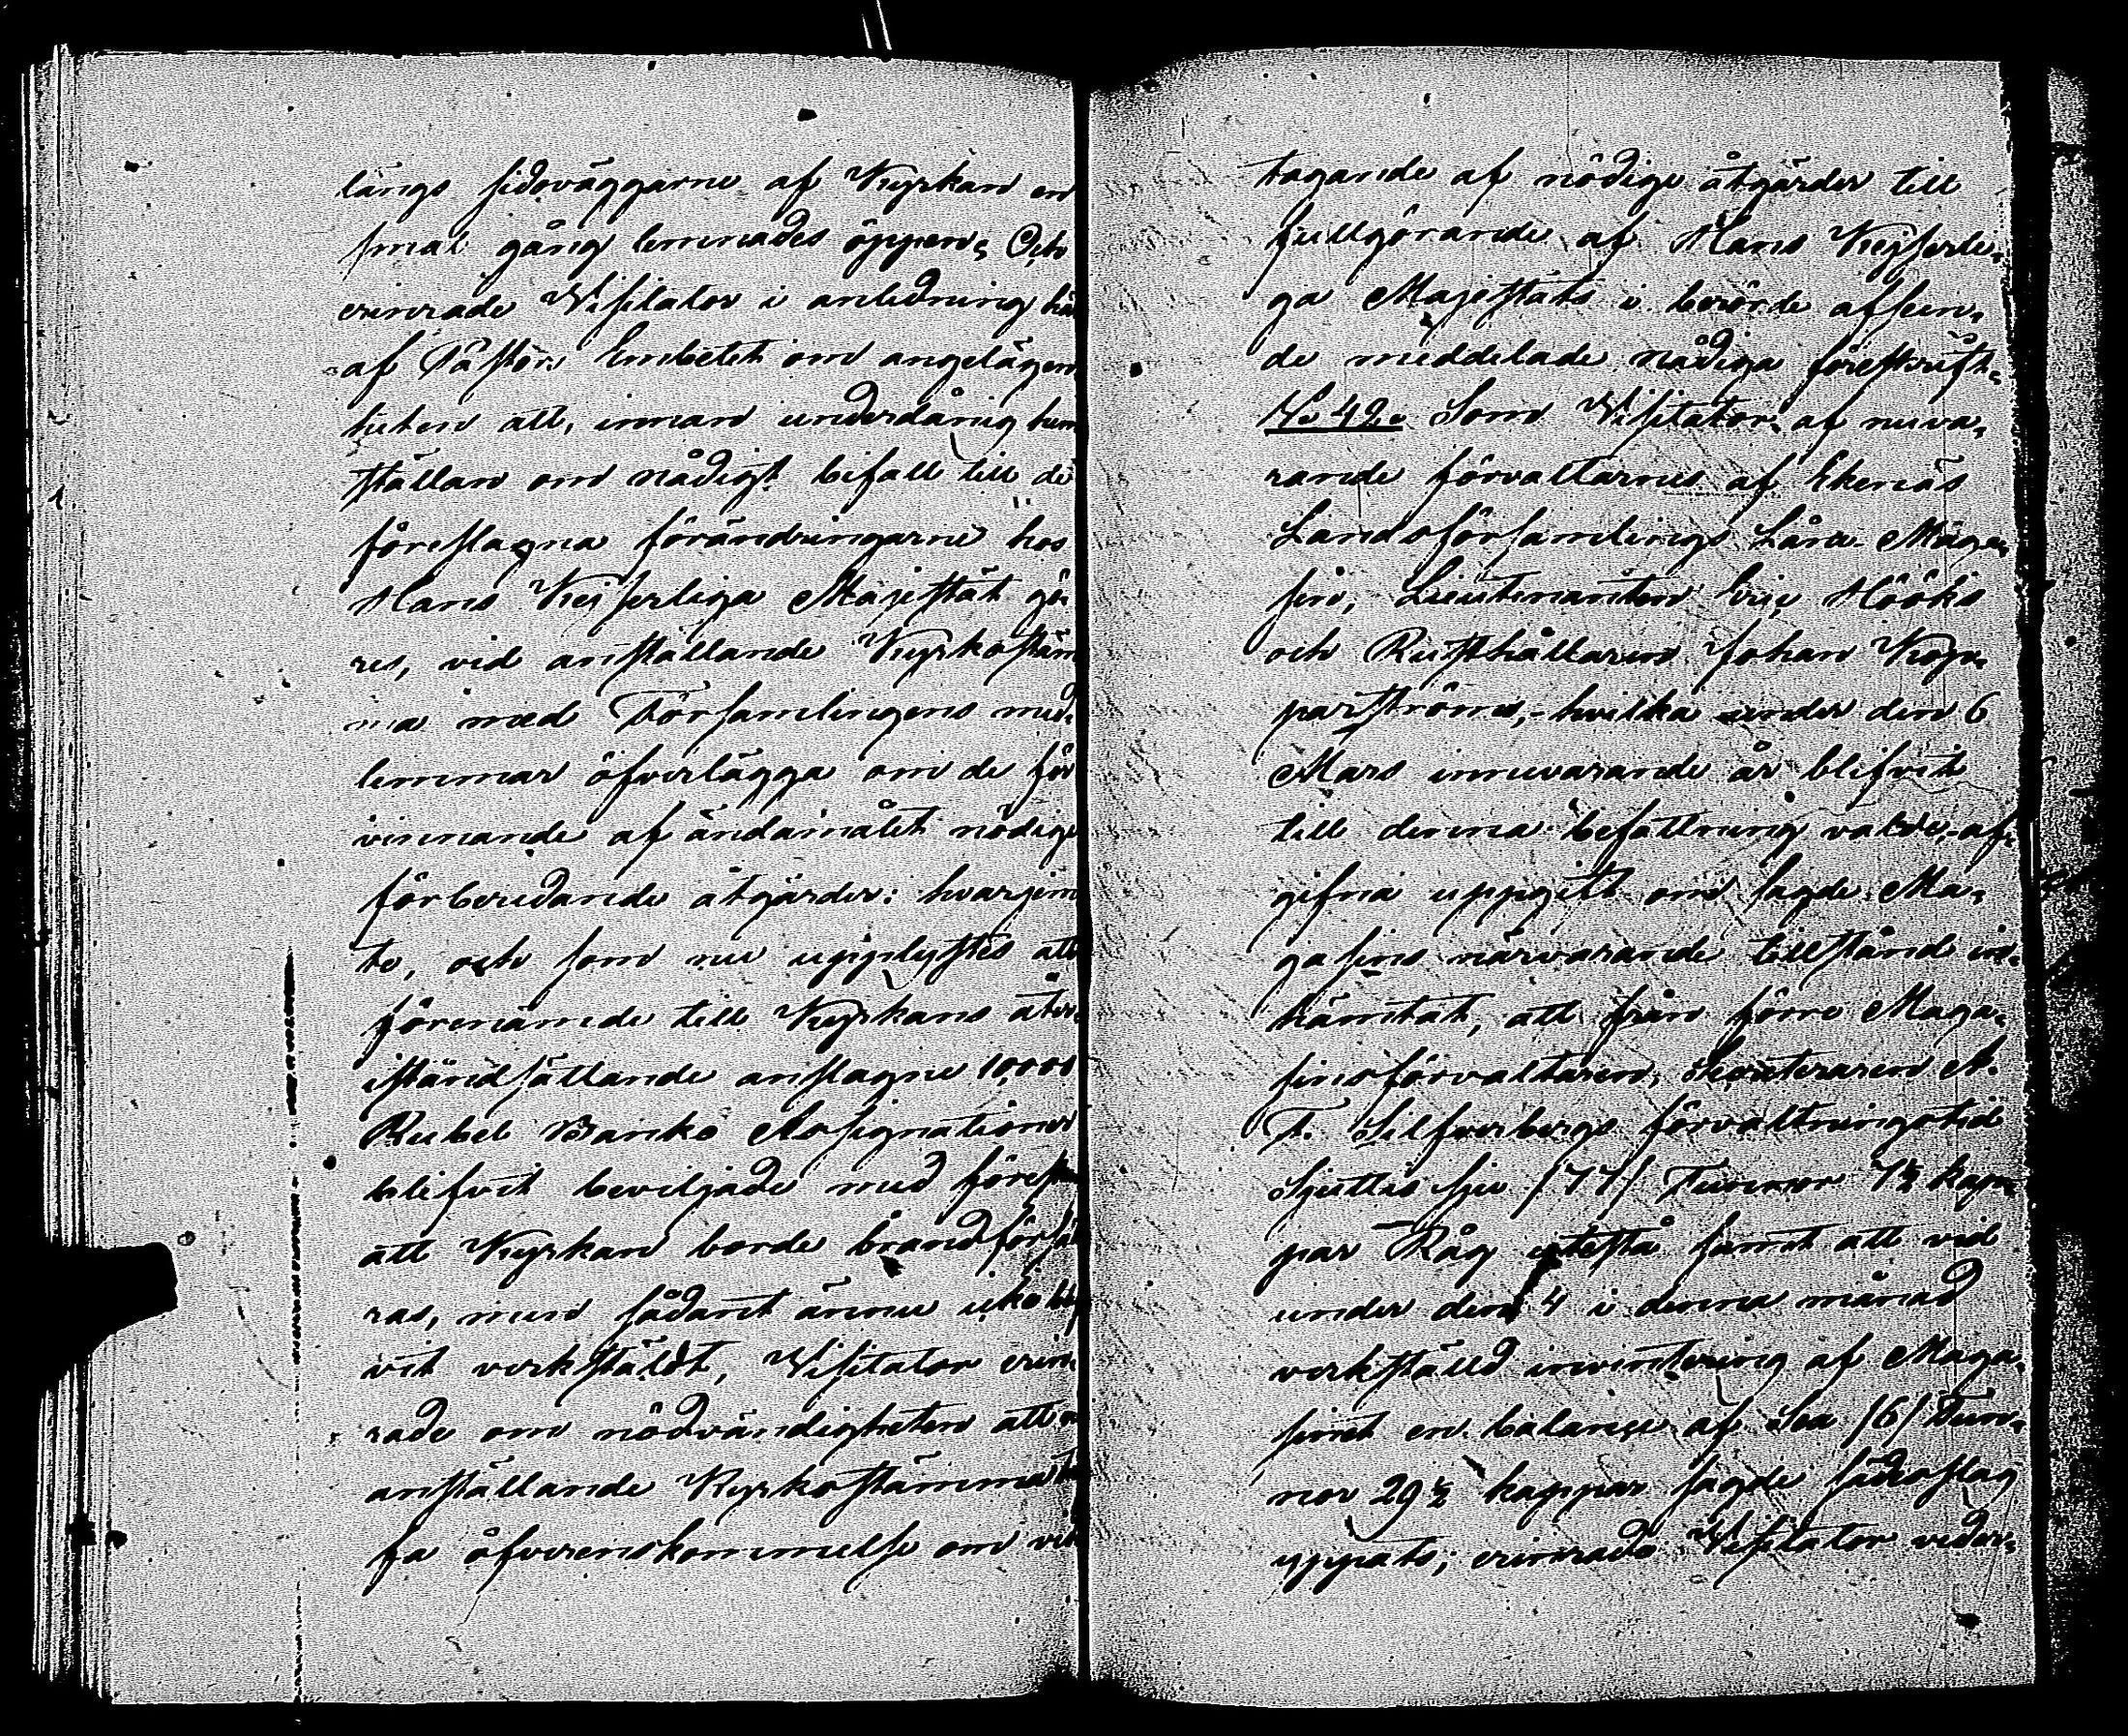 längs sidoväggarne af Kyrkan en
smal gång lemnades öppen; Och
erinrade Visitator i anledning här
af Pastors Embetet om angelägen
heten att, innan underdånig hem
ställan om nådigt bifall till de
föreslagna förändringarne hos
Hans Kejserliga Majestät gö-
res, vid anställande Kyrkostäm
ma med Församlingens med-
lemmar öfverlägga om de för
vinnande af ändamålet nödige
förberedande åtgärder: hvarjem
te, och som nu upplystes att
förenämde till Kyrkans åter-
iståndsättande anslagne 10,000
Rubel Banko Assignationer
blifvit beviljade med föreskr
att Kyrkan borde brandförsäk
ras, men sådant ännu icke blif
vit verkställdt, Visitator erin-
rade om nödvändigheten att
anställande Kyrkostämma
fa öfverenskommelse om vid
tagande af nödige åtgärder till
fullgörande af Hans Kejserli-
ga Majestäts i berörde afseen-
de meddelade nådiga föreskrift.
No 42. Som Visitator af nuva-
rande förvaltarnes af Ekenäs
Landsförsamlings Låne-Maga-
sin, Lieutenanten Eric Hööks
och Rusthållaren Johan Kop-
parströms, hvilka under den 6
Mars innevarande år blifvit
till denna befattning valde, af-
gifna uppgift om sagde Ma-
gasins närvarande tillstånd in-
hämtat, att från förre Maga-
sinsförvaltaren, Secreteraren A.
F. Silfverbergs förvaltningstid
Sjuttio sju /77/ Tunnor 7½ kap-
par Råg utestå samt att vid
under den 4 i denna månad
verkställd inventering af Maga-
sinet en balance af Sex /6/ Tun-
nor 29½ kappar sagde sädesslag
yppats; erinrade Visitator veder-